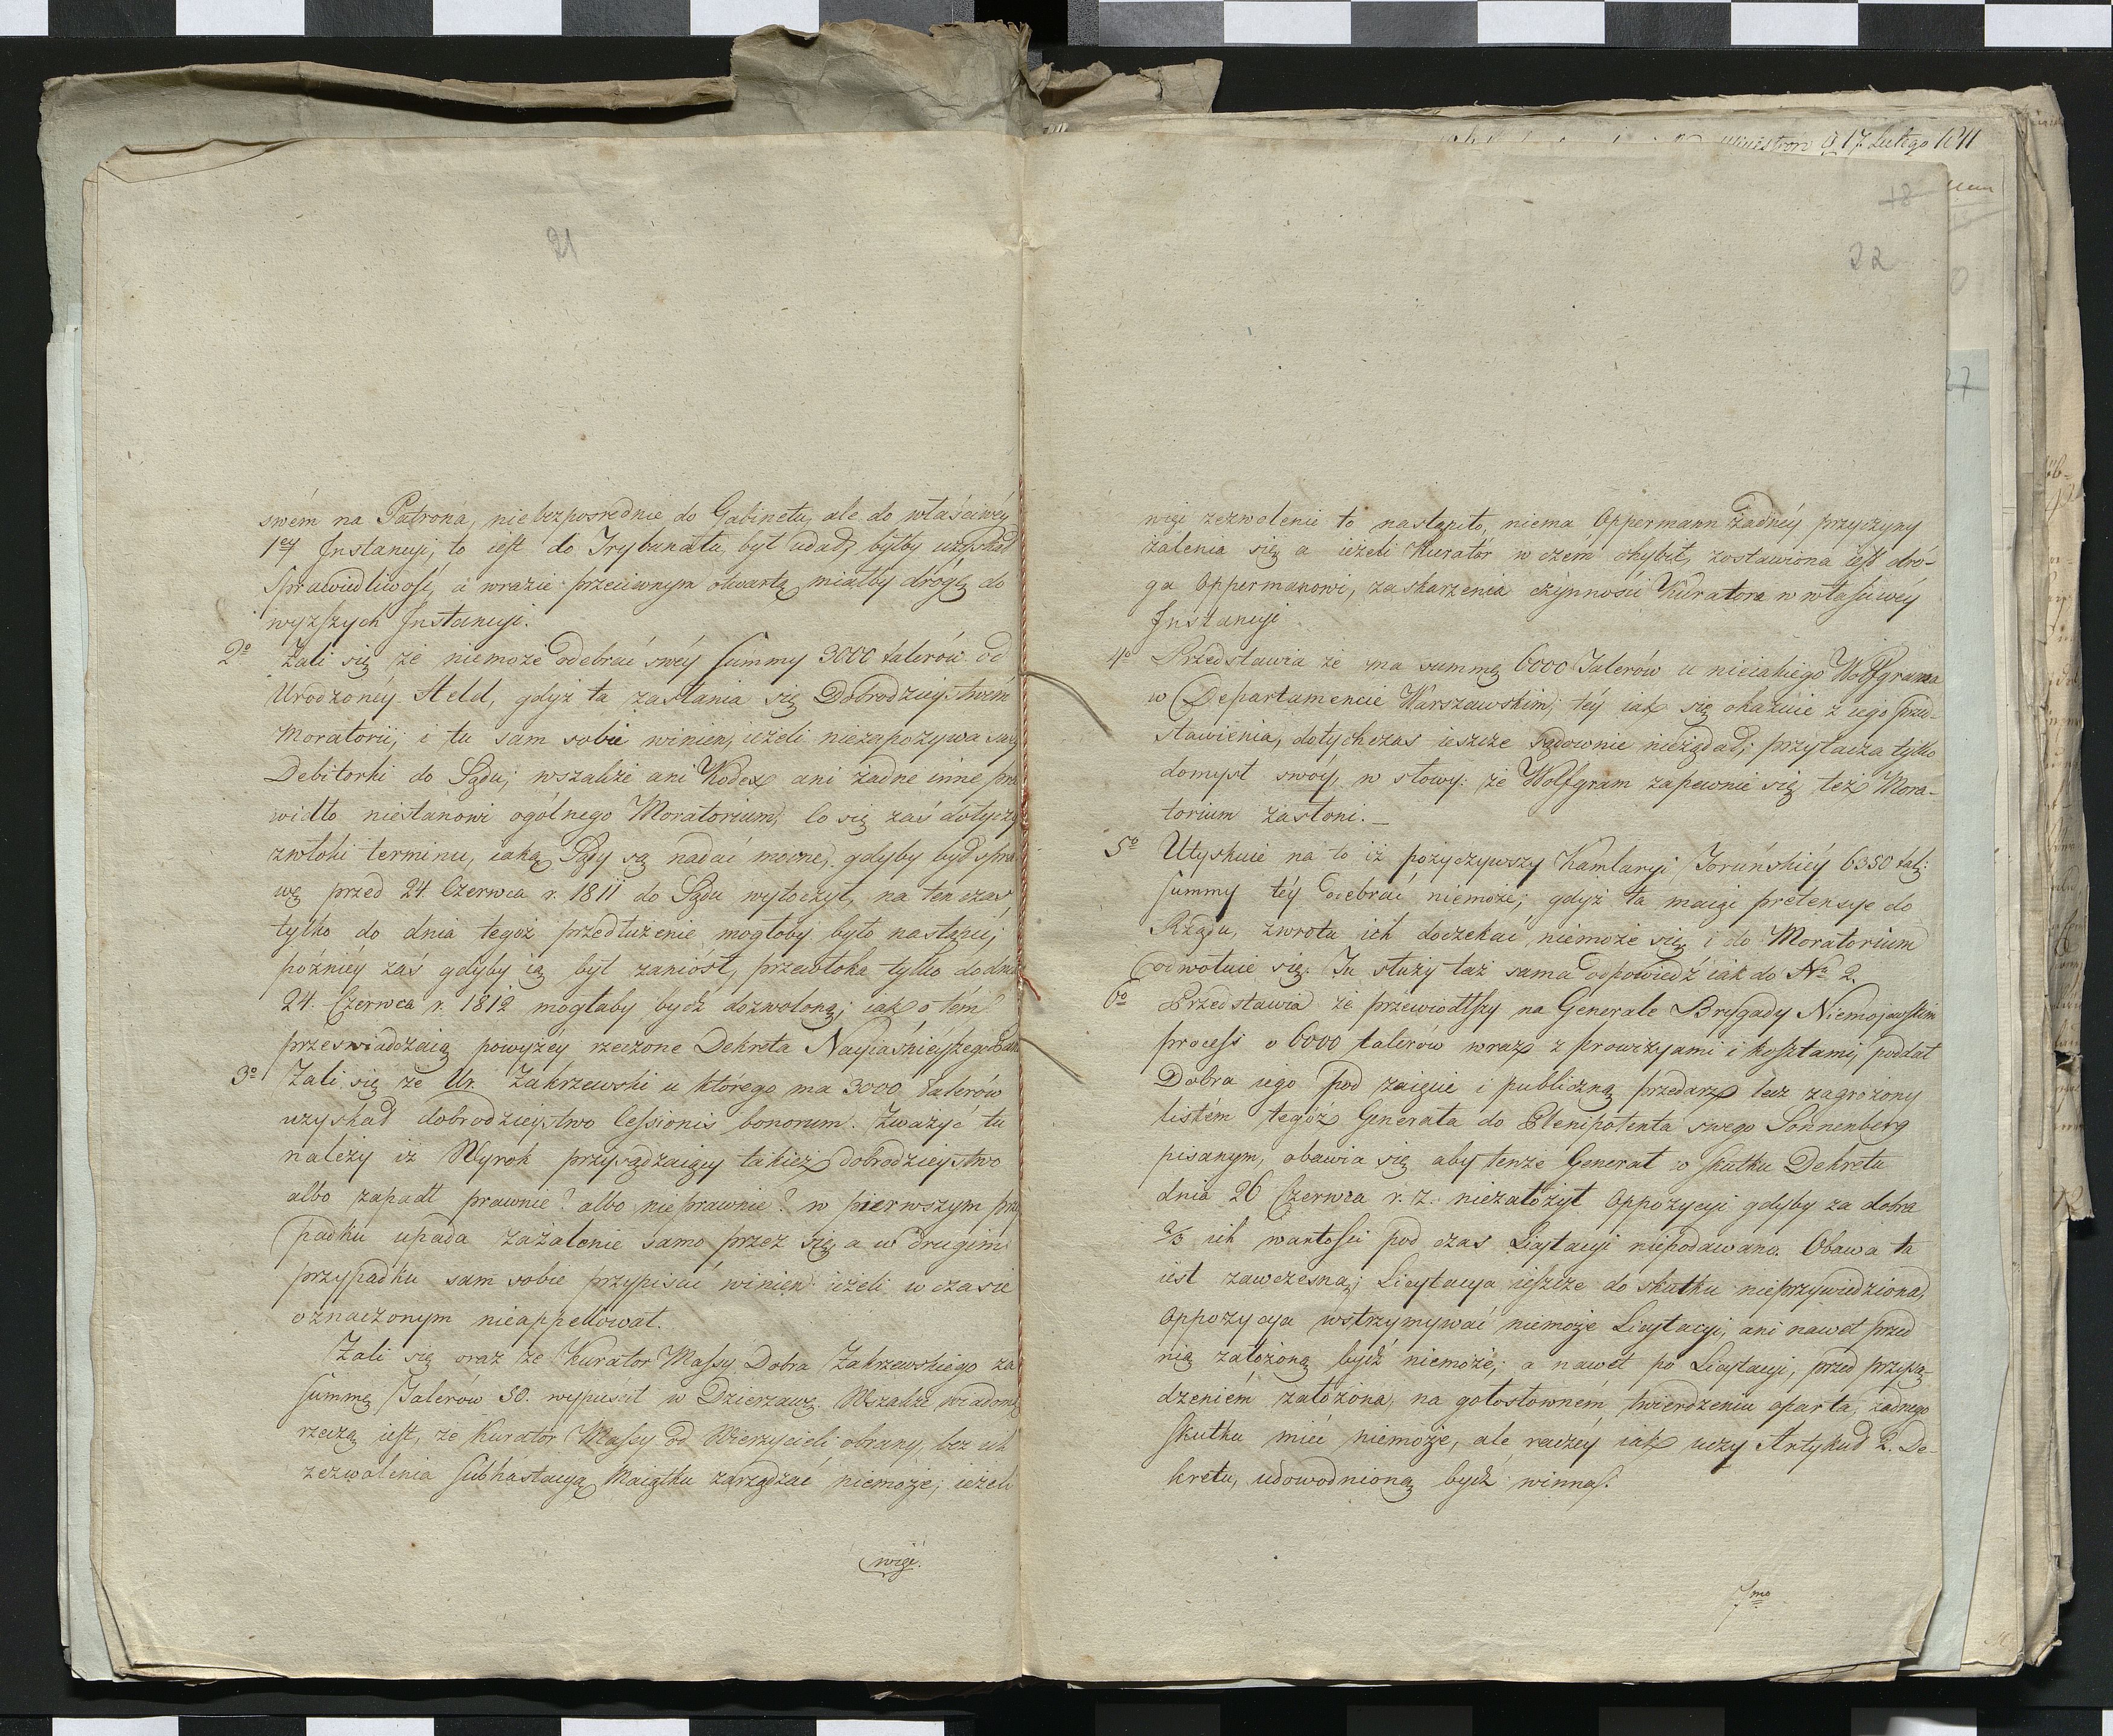 21
swém na Patrona, niebezposrednie do Gabinetu, ale do właściwéy
1ey Instancyi, to iest do Trybunału, był udał, byłby uzyskał
Sprawiedliwość, a wrazie przeciwnym otwartą miałby drógę do
wyższych Instancyi.
2o Żali się że niemoże odebrać swéy summy 3000 talerów od
Urodzonéy Held, gdyż ta zasłania się Dobrodzieystwem
Moratorii, i tu sam sobie winien, ieżeli niezapozywa swéy
Debitorki do Sądu; wszakże ani Kodex ani żadne inne pra
widło niestanowi ogólnego Moratorium, co się zaś dotyczy
zwłoki terminu, iaką Sądy są nadać mocne, gdyby był spra
wę przed 24. Czerwca r. 1811 do Sądu wytoczył, na ten czas
tylko do dnia tegoż przedłużenie mogłoby było nastąpić;
poźniéy zaś gdyby ią był zaniósł, przewłoka tylko do dnia
24. Czerwca r. 1812 mogłaby bydź dozwoloną; iak o tém
przeswiadczaią powyżéy rzeczone Dekreta Nayiaśnieyszego
3o Żali się że Ur. Zakrzewski u którego ma 3000 talerów
uzyskał dobrodzieystwo Cessionis bonorum. Zważyć tu
należy iż Wyrok przysądzaiący takież dobrodzieystwo
albo zapadł prawnie? albo nieprawnie? w pierwszym przy
padku upada zażalenie samo przez się a w drugim
przypadku sam sobie przypisać winien ieżeli w czasie
oznaczonym nieappellował.
Żali się oraz że Kurator Massy Dobra Zakrzewskiego za
summę Talerów 50. wypuścił w Dzierzawę. Wszakże wiadomą
rzeczą iest, że Kurator Massy od Wierzycieli obrany, bez ich
zezwolenia subhastacyą Maiątku zarządzać niemoże; ieżeli
więc.
Ministrów d 17. Lutego 1811
18
22
27
więc zezwolenie to nastąpiło, niema Oppermann żadnéy przyczyny
żalenia się a ieżeli Kurator w czém chybił, zostawiona iest dró-
ga Oppermanowi, zaskarzenia czynności Kuratora w właściwéy
Instancyi.
4o Przedstawia że ma summę 6000 Talerów u nieiakiégo Wolfgrama
w Departamencie Warszawskim; téy iak się okazuie z iego przed-
stawienia, dotychczas ieszcze sądownie nieżądał; przytacza tylko
domysł swóy, w słowy: że Wolfgram zapewnie się też Mora-
torium zasłoni. _
5o Utyskuie na to iż pożyczywszy Kamlaryi Toruńskiéy 6350 tal:
summy téy odebrać niemoże; gdyż ta maiąc pretensye do
Rządu, zwrotu ich doczekać niemoże się i do Moratorium
odwołuie się. Tu służy taż sama odpowiedź iak do No 2.
6o Przedstawia że przewiodłszy na Generale Brygady Niemojewskim
process o 6000 talerów wraz z prowizyami i kosztami, poddał
Dobra iego pod zaięcie i publiczną przedarz lecz zagrożony
listém tegoż Generała do Plenipotenta swego Sonnenberg
pisanym, obawia się aby tenże Generał w skutku Dekretu
dnia 26 Czerwca r. z. niezałożył Oppozycyi gdyby za dobra
2/3 ich wartości pod czas Licytacyi niepodawano. Obawa ta
iest zawczesną; Licytacya ieszcze do skutku nieprzywiedziona,
Oppozycya wstrzymywać niemoże Licytacyi, ani nawet przed
nią założoną bydź niemoże; a nawet po Licytacyi, przed przysą-
dzeniém założona, na gołosłowném twierdzeniu oparta, żadnego
skutku mieć niemoże, ale raczéy iak uczy Artykuł 2. De-
kretu, udowodnioną bydź winna.
7mo